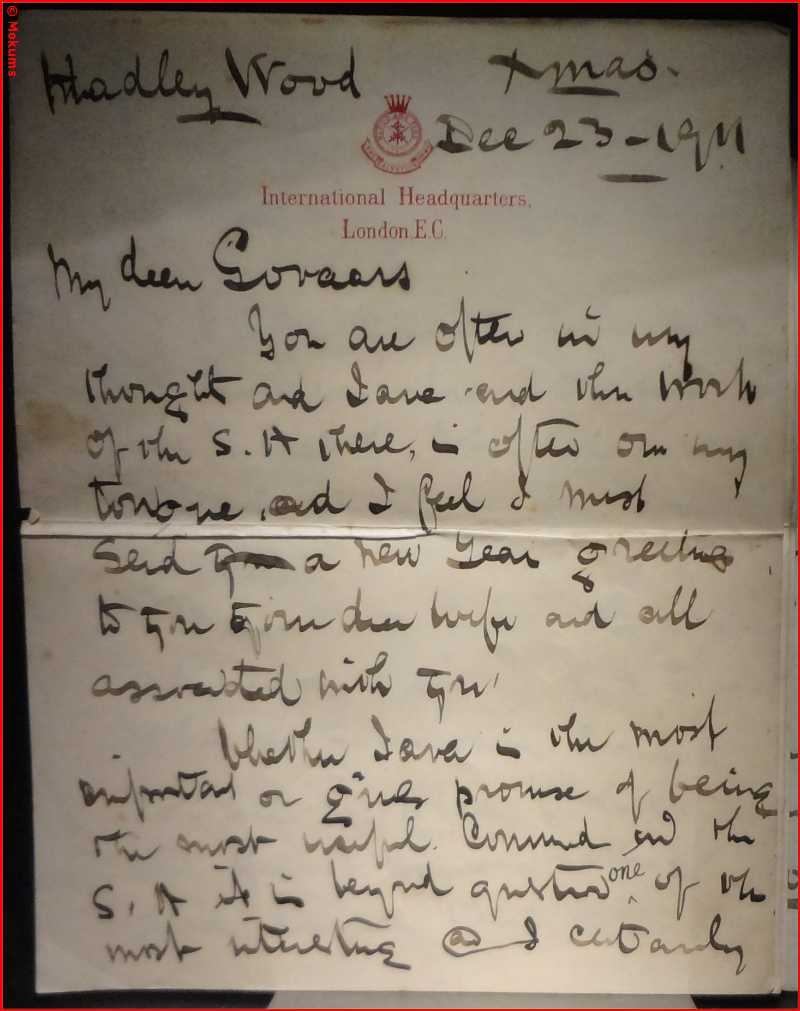 © Mokums
Hadley Wood Xmas.
Dec 23 - 1911
International Headquarters,
London, E.C.
My dear Govaars
You are often in my
thought and Java and the work
of the S. A there, is often on my
tongue, and I feel I must
send a New Year greeting
to you & your dear wife and all
associated with you
Whether Java is the most
important or gives promise of being
the most useful Command in the
S. A it is beyond question one of the
most interesting and I certainly